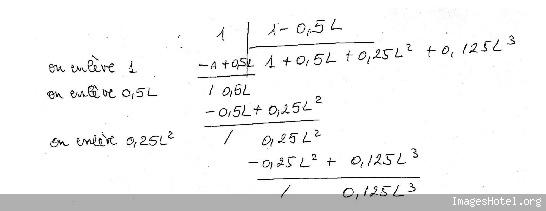 1 | 1 - 0,5L
on enlève 1 -1 + 0,5L 1 + 0,5L + 0,25L² + 0,125L³
on enlève 0,5L / 0,5L
-0,5L + 0,25L²
on enlève 0,25L² / 0,25L²
-0,25L² + 0,125L³
/ 0,125L³
ImagesHotel.org